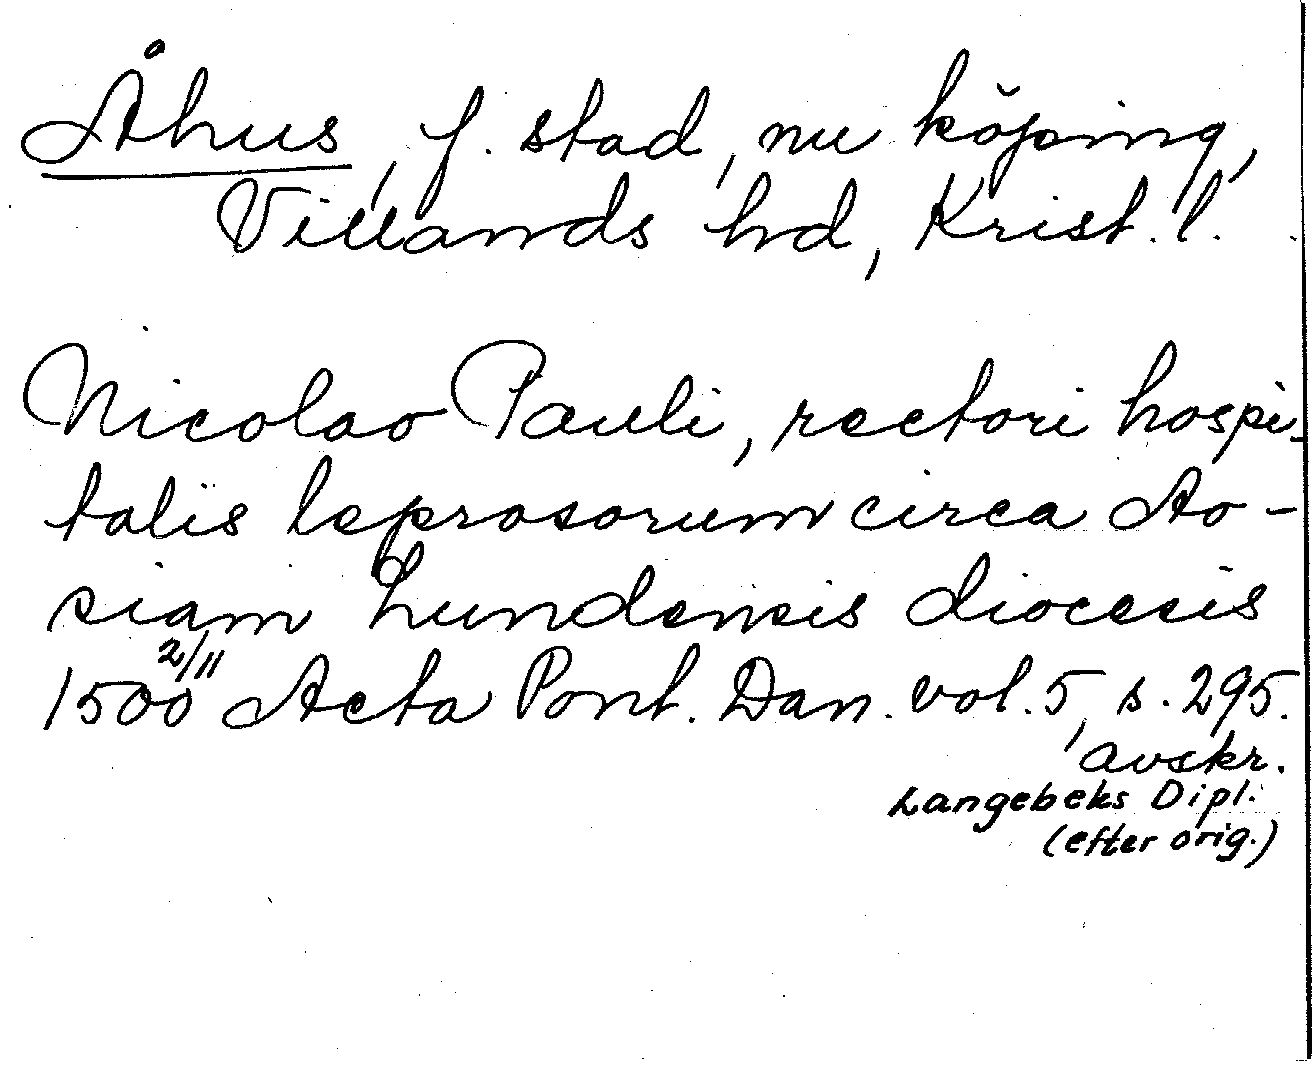 Åhus, f. stad, nu köping,
Villands hd, Krist. l.
Nicolao Pauli, rectori hospi-
talis leprosorum circa Ao-
siam Lundensis diocesis
1500 2/11 Acta Pont. Dan. vol. 5, s. 295.
avskr.
Langebeks Dipl.
(efter orig.)